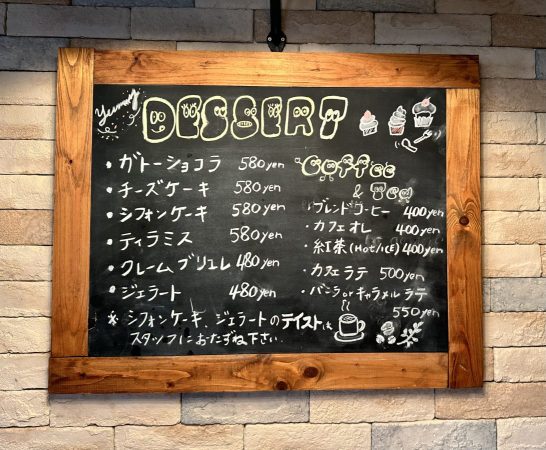 Yummy
DESSERT
・ガトーショコラ 580yen
・チーズケーキ 580yen
・シフォンケーキ 580yen
・ティラミス 580yen
・クレームブリュレ 480yen
・ジェラート 480yen
※シフォンケーキ、ジェラートのテイストは
スタッフにおたずね下さい.
Coffee
& Tea
・ブレンドコーヒー 400yen
・カフェオレ 400yen
・紅茶(HOT/ICE) 400yen
・カフェラテ 500yen
・バニラorキャラメルラテ
550yen